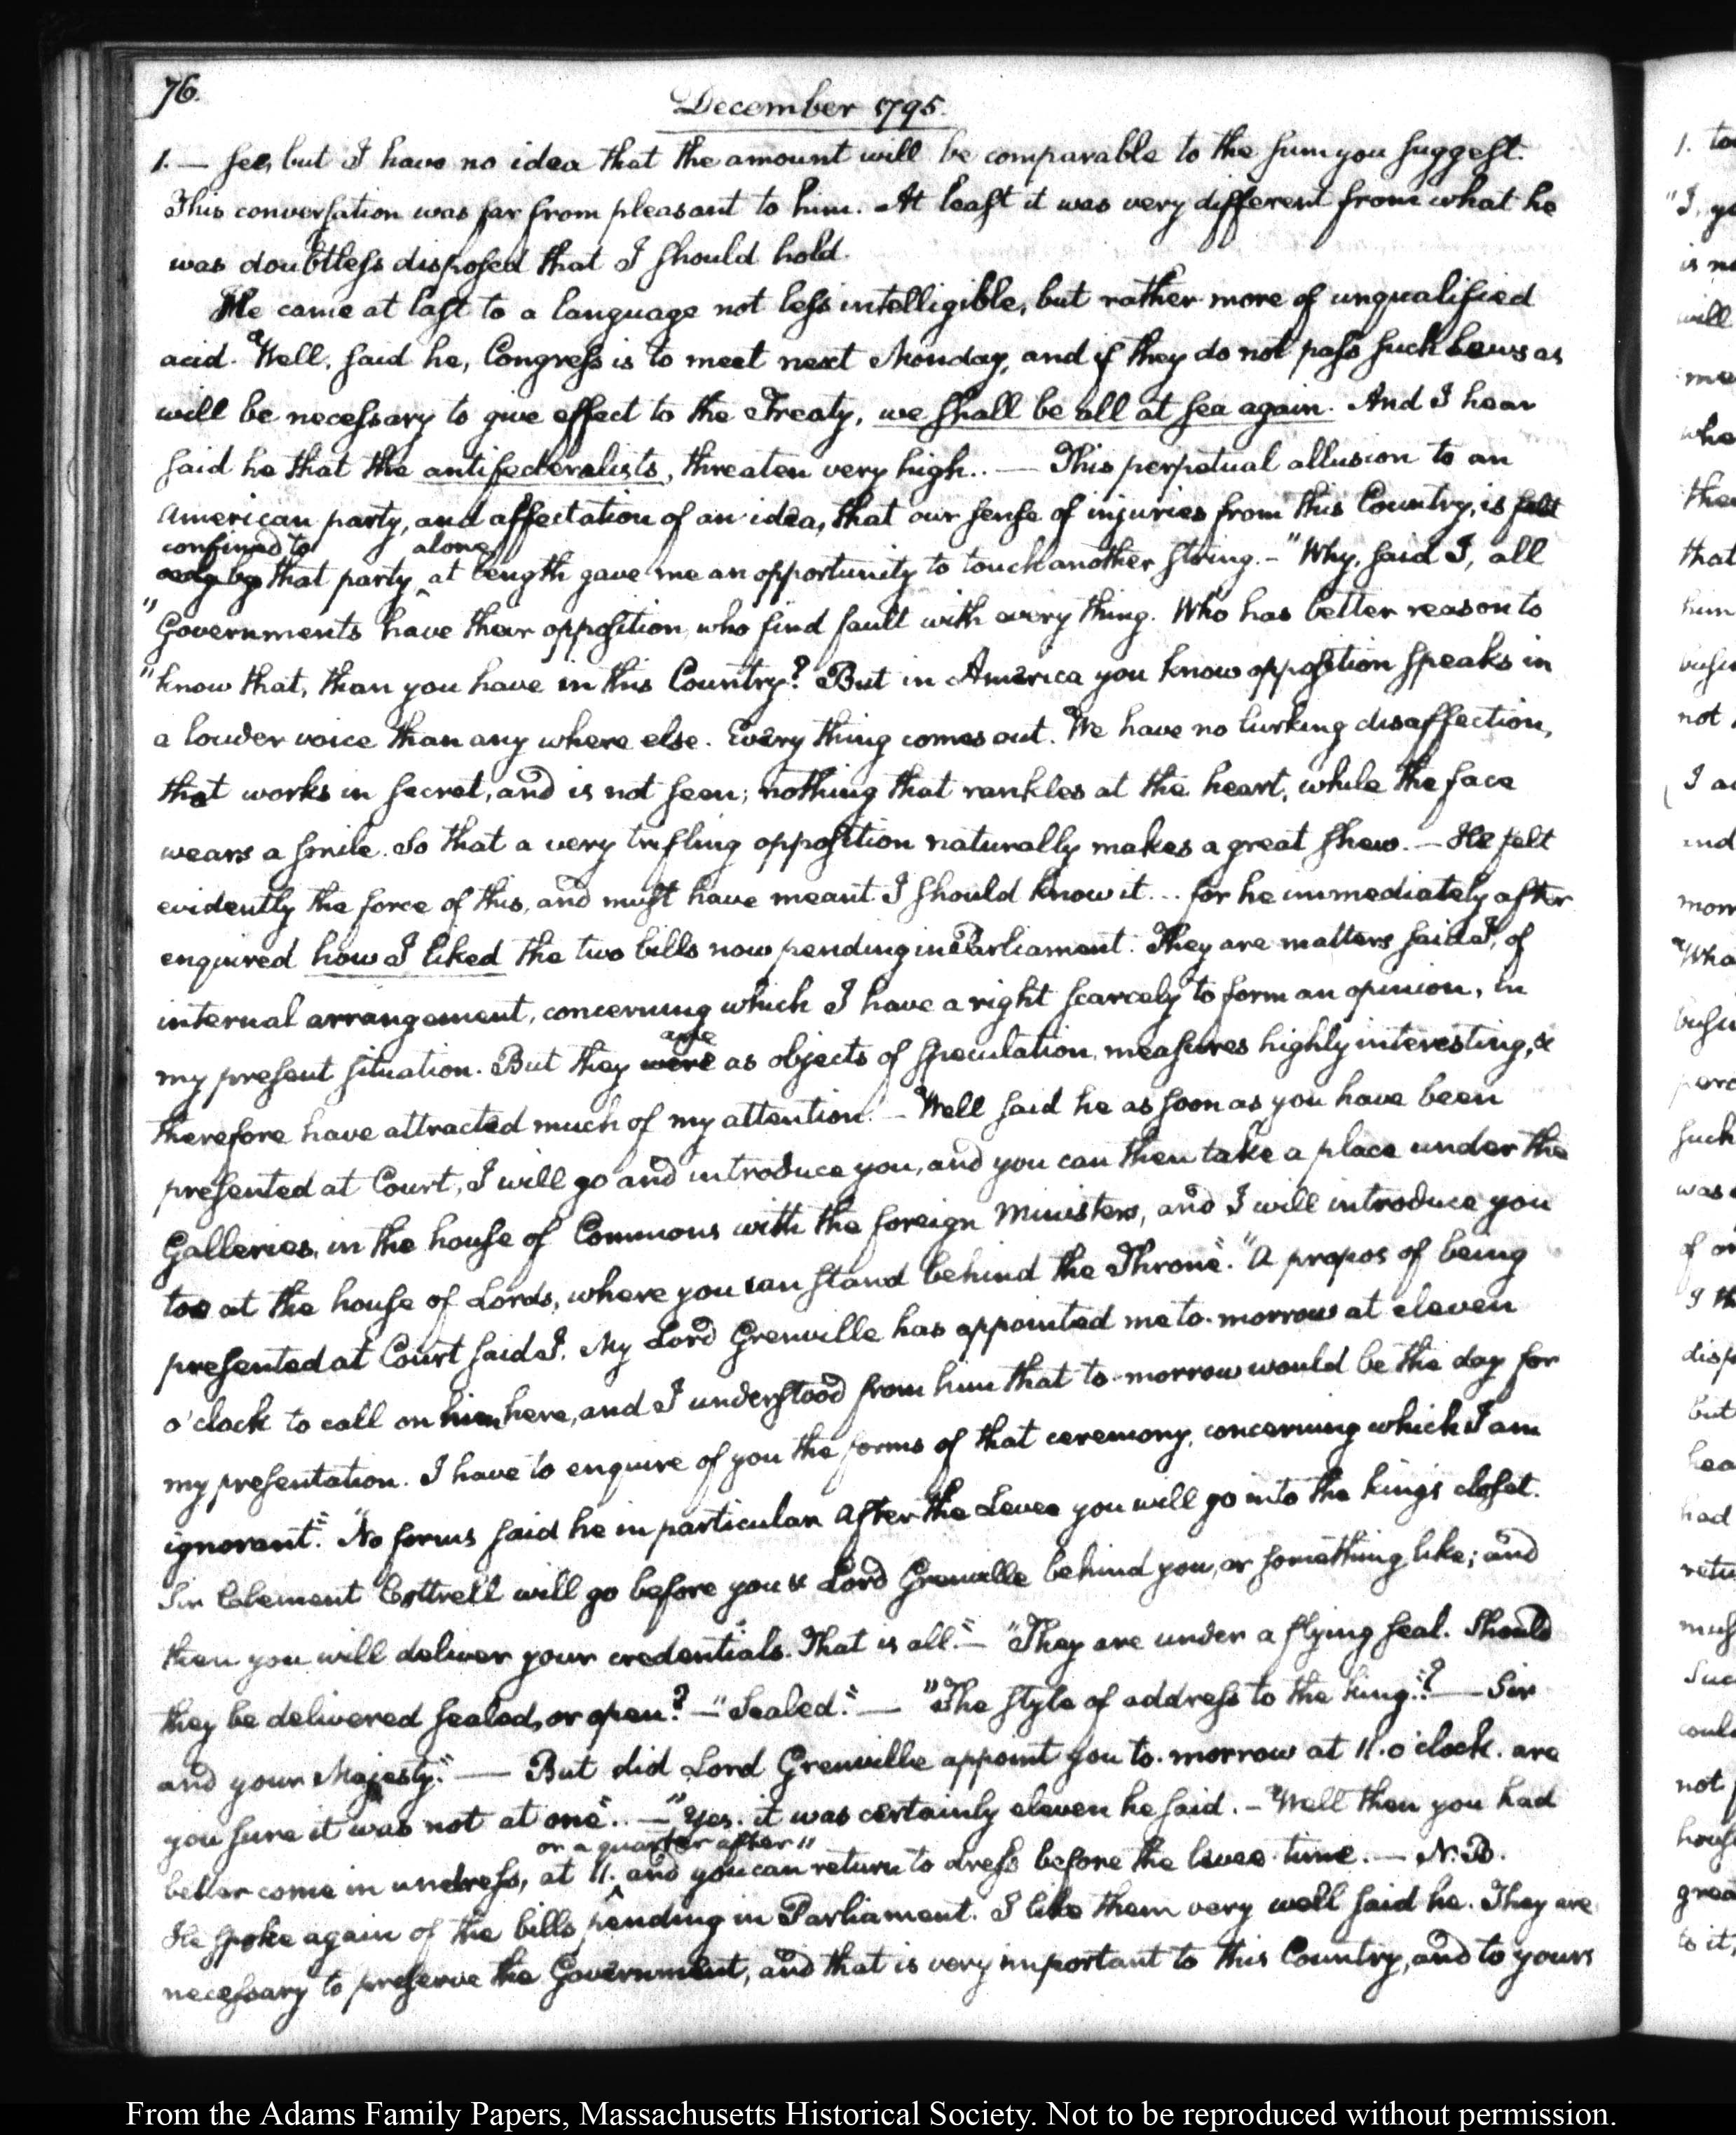 76.
December 1795.
1. — see, but I have no idea that the amount will be comparable to the sum you suggest.
This conversation was far from pleasant to him. At least it was very different from what he
was doubtless disposed that I should hold.
He came at last to a language not less intelligible, but rather more of unqualified
acid. "Well, said he, Congress is to meet next Monday, and if they do not pass such Laws as
will be necessary to give effect to the Treaty, we shall be all at sea again. And I hear
said he that the antifederalists, threaten very high.. — This perpetual allusion to an
American party, and affectation of an idea, that our sense of injuries from this Country, is felt
confined to alone
only by that party, at length gave me an opportunity to touch another string. - "Why, said I, all
"Governments have their opposition, who find fault with every thing. Who has better reason to
"know that, than you have in this Country? But in America you know opposition speaks in
a louder voice than any where else. Every thing comes out. We have no lurking disaffection,
that works in secret, and is not seen; nothing that rankles at the heart, while the face
wears a smile. So that a very trifling opposition naturally makes a great shew. — He felt
evidently the force of this, and must have meant I should know it... for he immediately after
enquired how I liked the two bills now pending in Parliament. They are matters said I, of
internal arrangement, concerning which I have a right scarcely to form an opinion, in
are
my present situation. But they were as objects of speculation, measures highly interesting, &
therefore have attracted much of my attention. — Well said he as soon as you have been
presented at Court, I will go and introduce you, and you can then take a place under the
Galleries, in the house of Commons with the foreign Ministers, and I will introduce you
too at the house of Lords, where you can stand behind the Throne". "A propos of being
presented at Court said I. My Lord Grenville has appointed me to-morrow at eleven
o'clock to call on him here, and I understood from him that to-morrow would be the day for
my presentation. I have to enquire of you the forms of that ceremony, concerning which I am
ignorant". "No forms said he in particular. After the Levee you will go into the king's closet.
Sir Clement Cottrell will go before you & Lord Grenville behind you, or something like; and
then you will deliver your credentials. That is all". — "They are under a flying seal. Should
they be delivered sealed, or open? — "Sealed". — "The style of address to the king"? — Sir
and your Majesty". — But did Lord Grenville appoint you to-morrow at 11. o'clock. are
you sure it was not at one".. — "Yes. it was certainly eleven he said. - "Well then you had
or a quarter after"
better come in undress, at 11. and you can return to dress before the levee time. — N.B.
He spoke again of the bills, pending in Parliament. I like them very well said he. They are
necessary to preserve the Government, and that is very important to this Country, and to yours
From the Adams Family Papers, Massachusetts Historical Society. Not to be reproduced without permission.